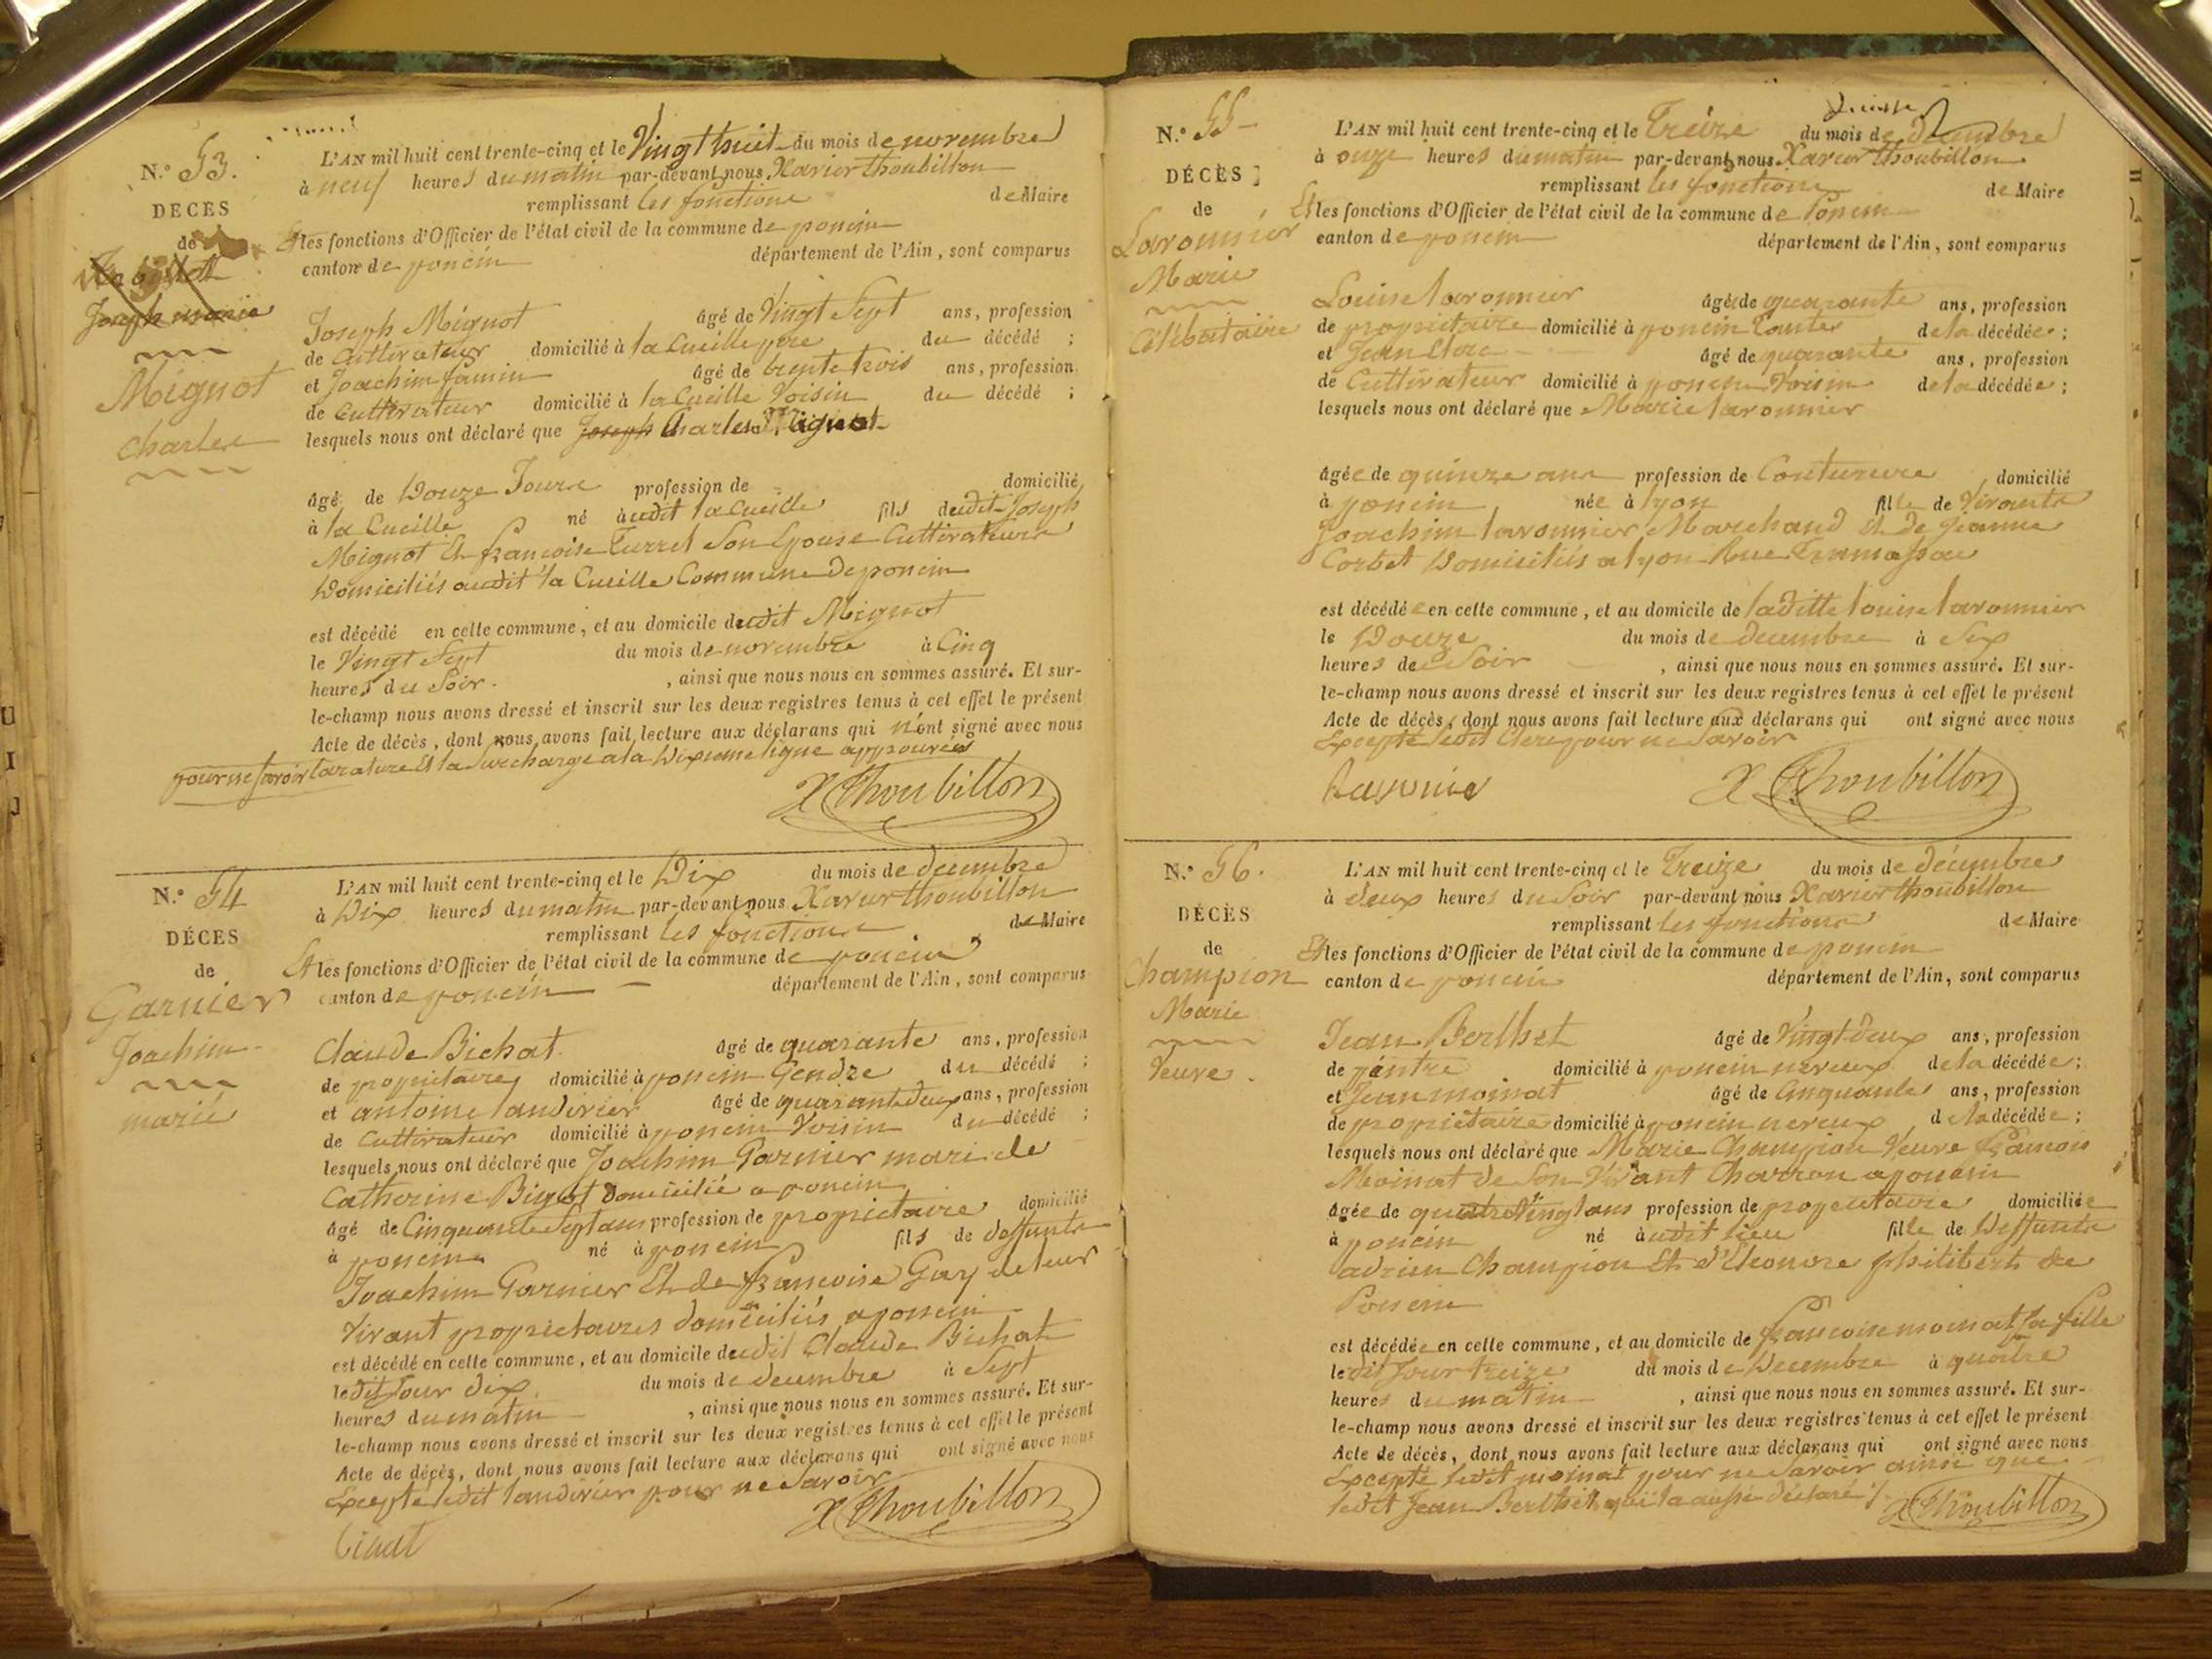 N.° 53.
DÉCÈS
de
Joseph marie
Mignot
Charles
L'AN mil huit cent trente-cinq et le Vingt huit du mois de novembre
à neuf heures du matin par-devant nous Xavier Thoubillon
remplissant les fonctions de Maire
Et les fonctions d'Officier de l'état civil de la commune de poncin
canton de poncin département de l'Ain, sont comparus
Joseph Mignot âgé de Vingt Sept ans, profession
de Cultivateur domicilié à la Cueille père du décédé ;
et Joachim famin âgé de trente trois ans, profession
de Cultivateur domicilié à la Cueille Voisin du décédé ;
lesquels nous ont déclaré que Joseph Charles Mignot
âgé de Douze Jours profession de domicilié
à la Cueille né audit la Cueille fils dudit Joseph
Mignot Et françoise Curret Son Epouse Cultivateurs
Domiciliés audit la Cueille Commune de poncin
est décédé en cette commune, et au domicile dudit Mignot
le Vingt Sept du mois de novembre à Cinq
heures du Soir. , ainsi que nous nous en sommes assuré. Et sur-
le-champ nous avons dressé et inscrit sur les deux registres tenus à cet effet le présent
Acte de décès, dont nous avons fait lecture aux déclarans qui n'ont signé avec nous
pour ne Savoir la rature Et la Surcharge a la Dixieme ligne approuvés
X Thoubillon
N.° 54
DÉCÈS
de
Garnier
Joachim
marié
L'AN mil huit cent trente-cinq et le Dix du mois de decembre
à Dix heures du matin par-devant nous Xavier Thoubillon
remplissant les fonctions de Maire
Et les fonctions d'Officier de l'état civil de la commune de poncin
canton de poncin département de l'Ain, sont comparus
Claude Bichat âgé de quarante ans, profession
de propriétaire domicilié à poncin Gendre du décédé ;
et antoine landivier âgé de quarante deux ans, profession
de Cultivateur domicilié à poncin Voisin du décédé ;
lesquels nous ont déclaré que Joachim Garnier mari de
Catherine Bigot domicilié a poncin
âgé de Cinquante Sept ans profession de propriétaire domicilié
à poncin né à poncin fils de deffunts
Joachim Garnier Et de françoise Guy de leur
Vivant propriétaires domiciliés a poncin
est décédé en cette commune, et au domicile dudit Claude Bichat
le dit Jour dix du mois de decembre à Sept
heures du matin , ainsi que nous nous en sommes assuré. Et sur-
le-champ nous avons dressé et inscrit sur les deux registres tenus à cet effet le présent
Acte de décès, dont nous avons fait lecture aux déclarans qui ont signé avec nous
Excepté ledit landivier pour ne Savoir
X Thoubillon
N.° 55
DÉCÈS
de
Laronnier
Marie
Célibataire
L'AN mil huit cent trente-cinq et le Treize du mois de Decembre
à onze heures du matin par-devant nous Xavier Thoubillon
remplissant les fonctions de Maire
Et les fonctions d'Officier de l'état civil de la commune de Poncin
canton de poncin département de l'Ain, sont comparus
Louise laronnier âgée de quarante ans, profession
de propriétaire domicilié à poncin tante de la décédée ;
et Jean Clerc âgé de quarante ans, profession
de Cultivateur domicilié à poncin Voisin de la décédée ;
lesquels nous ont déclaré que Marie laronnier
âgée de quinze ans profession de Couturiere domicilié
à poncin née à lyon fille de Vivants
Joachim laronnier Marchand Et De Jeanne
Corbet Domiciliés a lyon Rue Tramassac
est décédée en cette commune, et au domicile de laditte louise laronnier
le Douze du mois de decembre à Six
heures de Soir , ainsi que nous nous en sommes assuré. Et sur-
le-champ nous avons dressé et inscrit sur les deux registres tenus à cet effet le présent
Acte de décès, dont nous avons fait lecture aux déclarans qui ont signé avec nous
Excepté ledit Clerc pour ne Savoir
X Thoubillon
N.° 56.
DÉCÈS
de
Champion
Marie
Veuve.
L'AN mil huit cent trente-cinq et le Treize du mois de décembre
à deux heures du Soir par-devant nous Xavier Thoubillon
remplissant les fonctions de Maire
Et les fonctions d'Officier de l'état civil de la commune de poncin
canton de poncin département de l'Ain, sont comparus
Jean Berthet âgé de Vingt deux ans, profession
de peintre domicilié à poncin neveux de la décédée ;
et Jean moinat âgé de Cinquante ans, profession
de propriétaire domicilié à poncin neveux de la décédée ;
lesquels nous ont déclaré que Marie Champion Veuve françois
Moinat de Son Vivant Charron a poncin
âgée de quatre Vingt ans profession de propriétaire domiciliée
à poncin né audit lieu fille de Deffunts
adrien Champion Et d'Eleonore philibert de
Poncin
est décédée en cette commune, et au domicile de françoise moinat Sa fille
le dit Jour treize du mois de Decembre à quatre
heures du matin , ainsi que nous nous en sommes assuré. Et sur-
le-champ nous avons dressé et inscrit sur les deux registres tenus à cet effet le présent
Acte de décès, dont nous avons fait lecture aux déclarans qui ont signé avec nous
Excepté ledit moinat pour ne Savoir ainsi que
ledit Jean Berthet qui la aussi déclaré
X Thoubillon